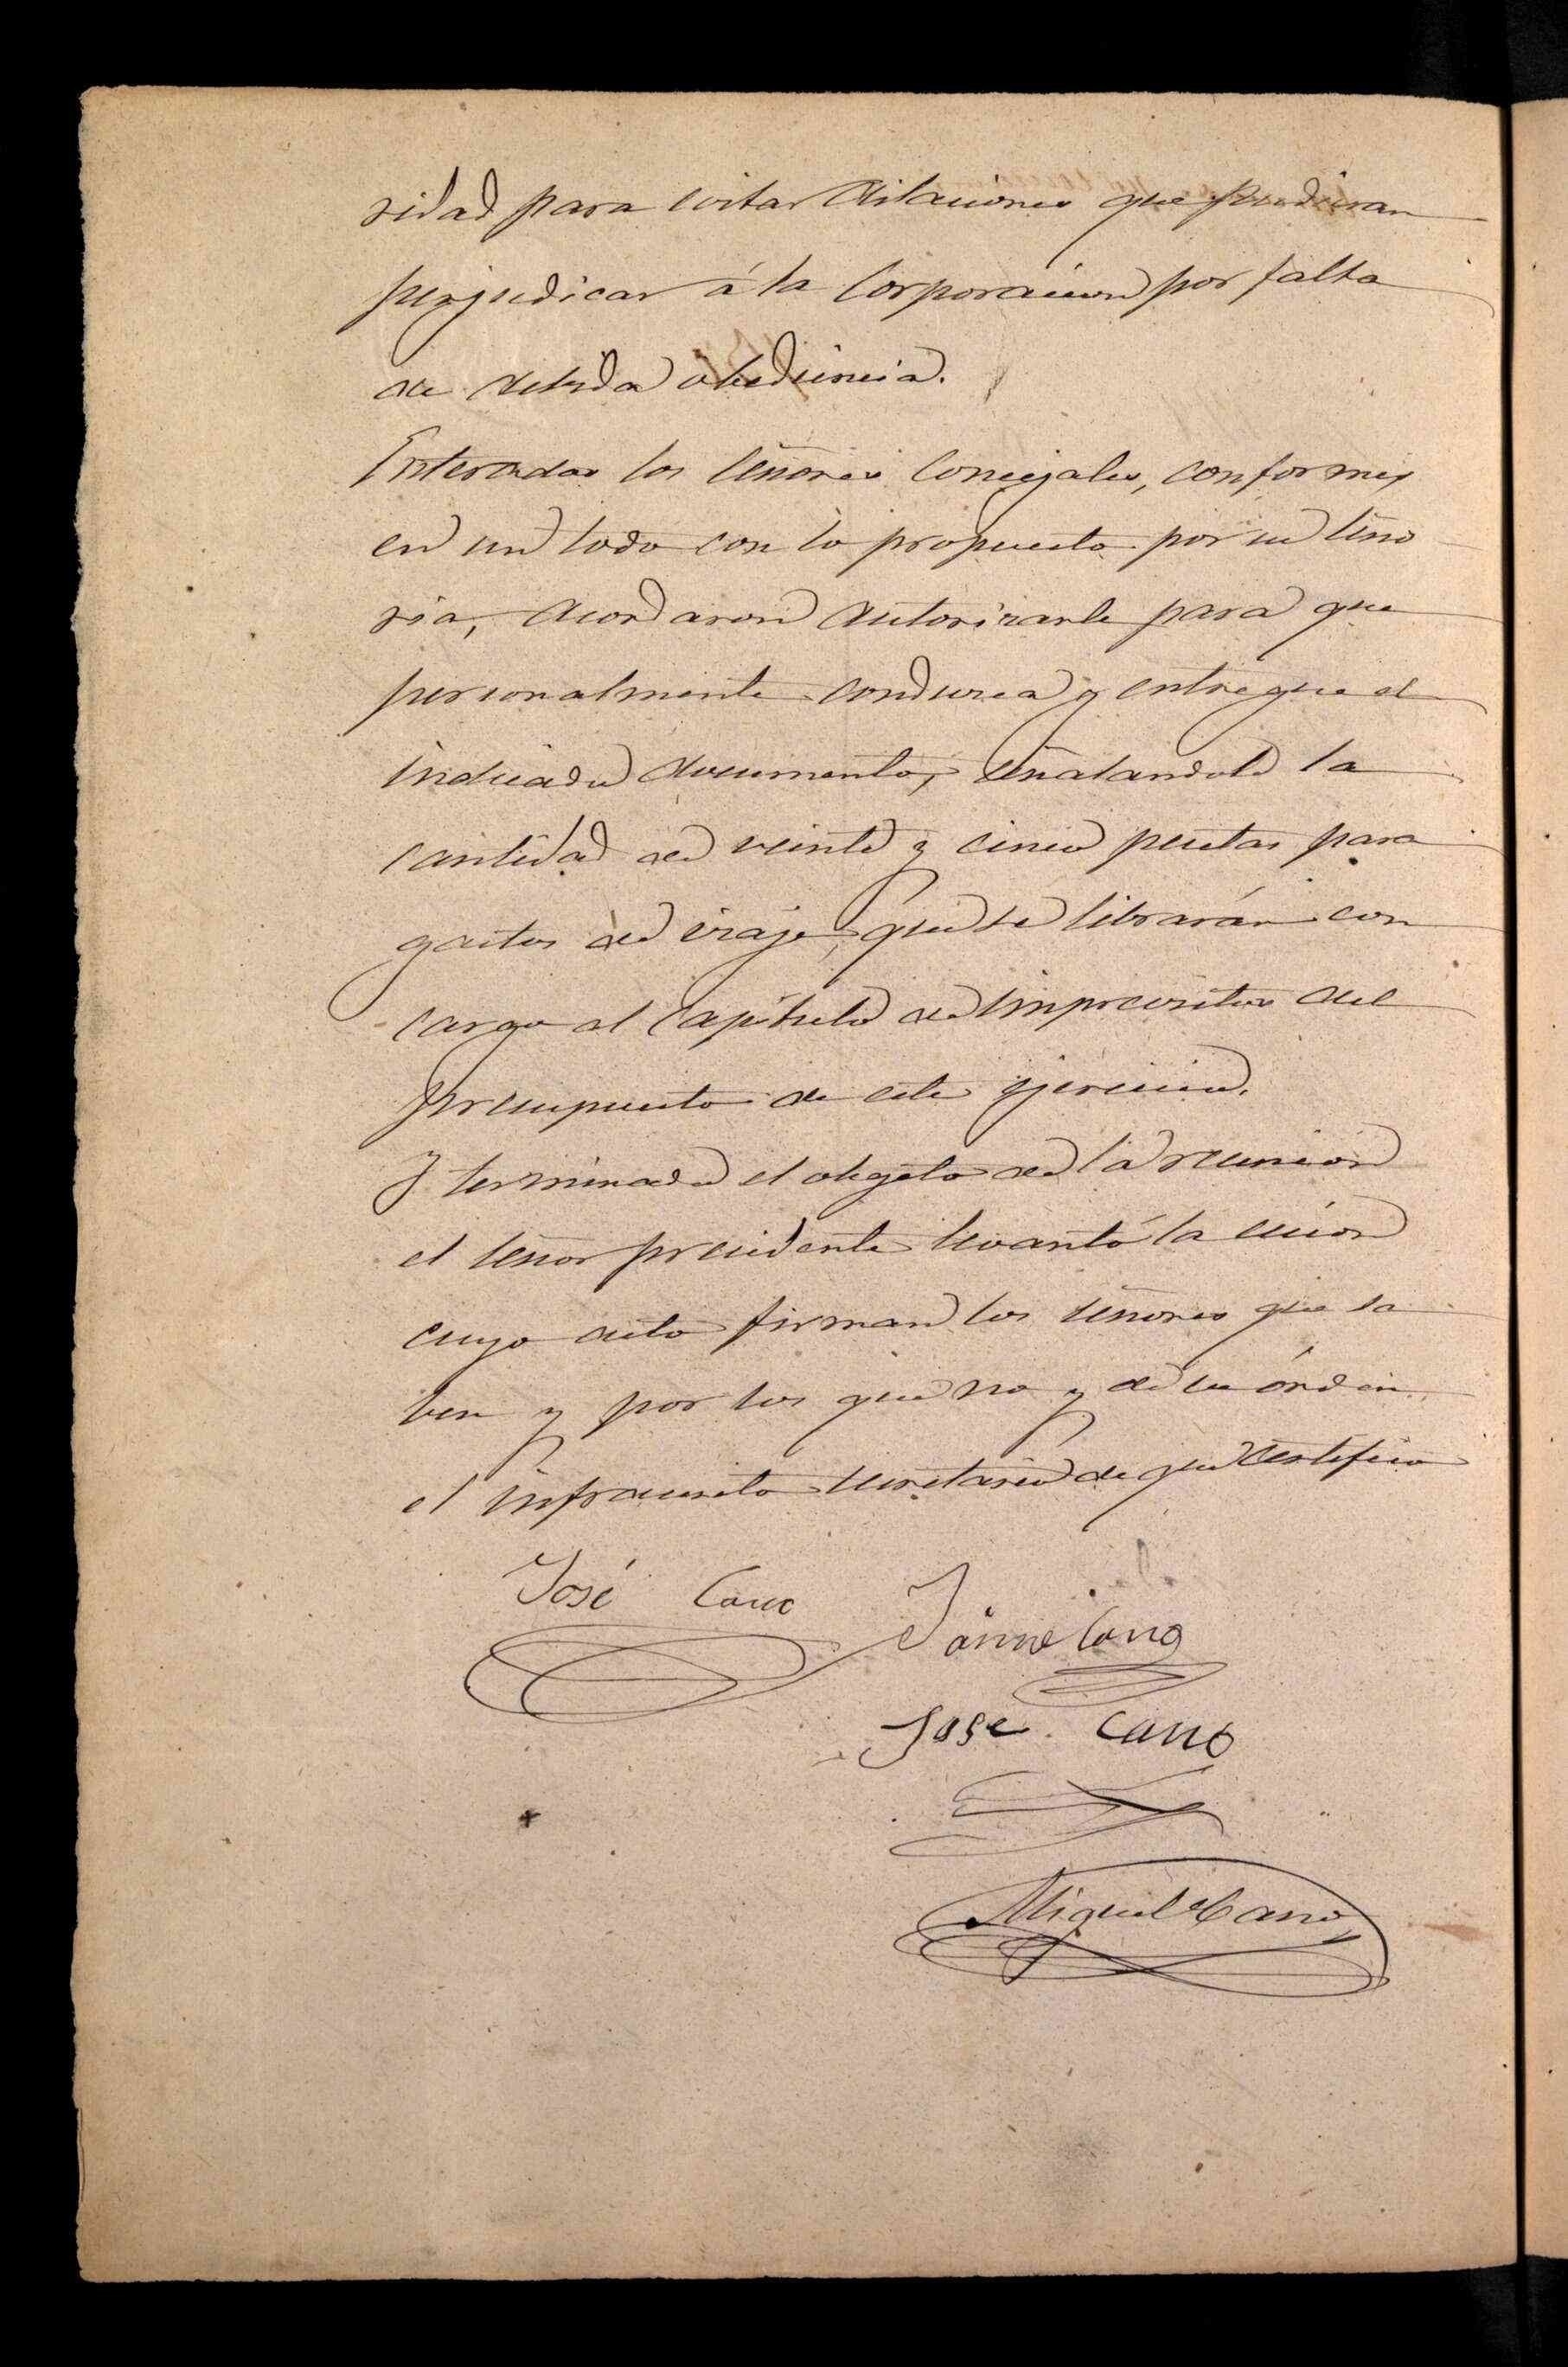 sidad para evitar dilaciones que pudieran
perjudicar á la Corporacion por falta
de debida obediencia.
Enterados los señores Concejales, conformes
en un todo con lo propuesto por su seño
ria, acordaron autorizarle para que
personalmente conduzca y entregue el
indicado documento, señalandole la
cantidad de veinte y cinco pesetas para
gastos de viaje, que se librarán con
cargo al capitulo de imprevistos del
presupuesto de este ejercicio.
Y terminado el obgeto de la reunion
el señor presidente levantó la sesion
cuyo acto firman los señores que sa
ben y por los que no y de su órden
el infrascrito secretario de que certifico
José Cano Jaime Cano
Jose Cano
Miguel Cano